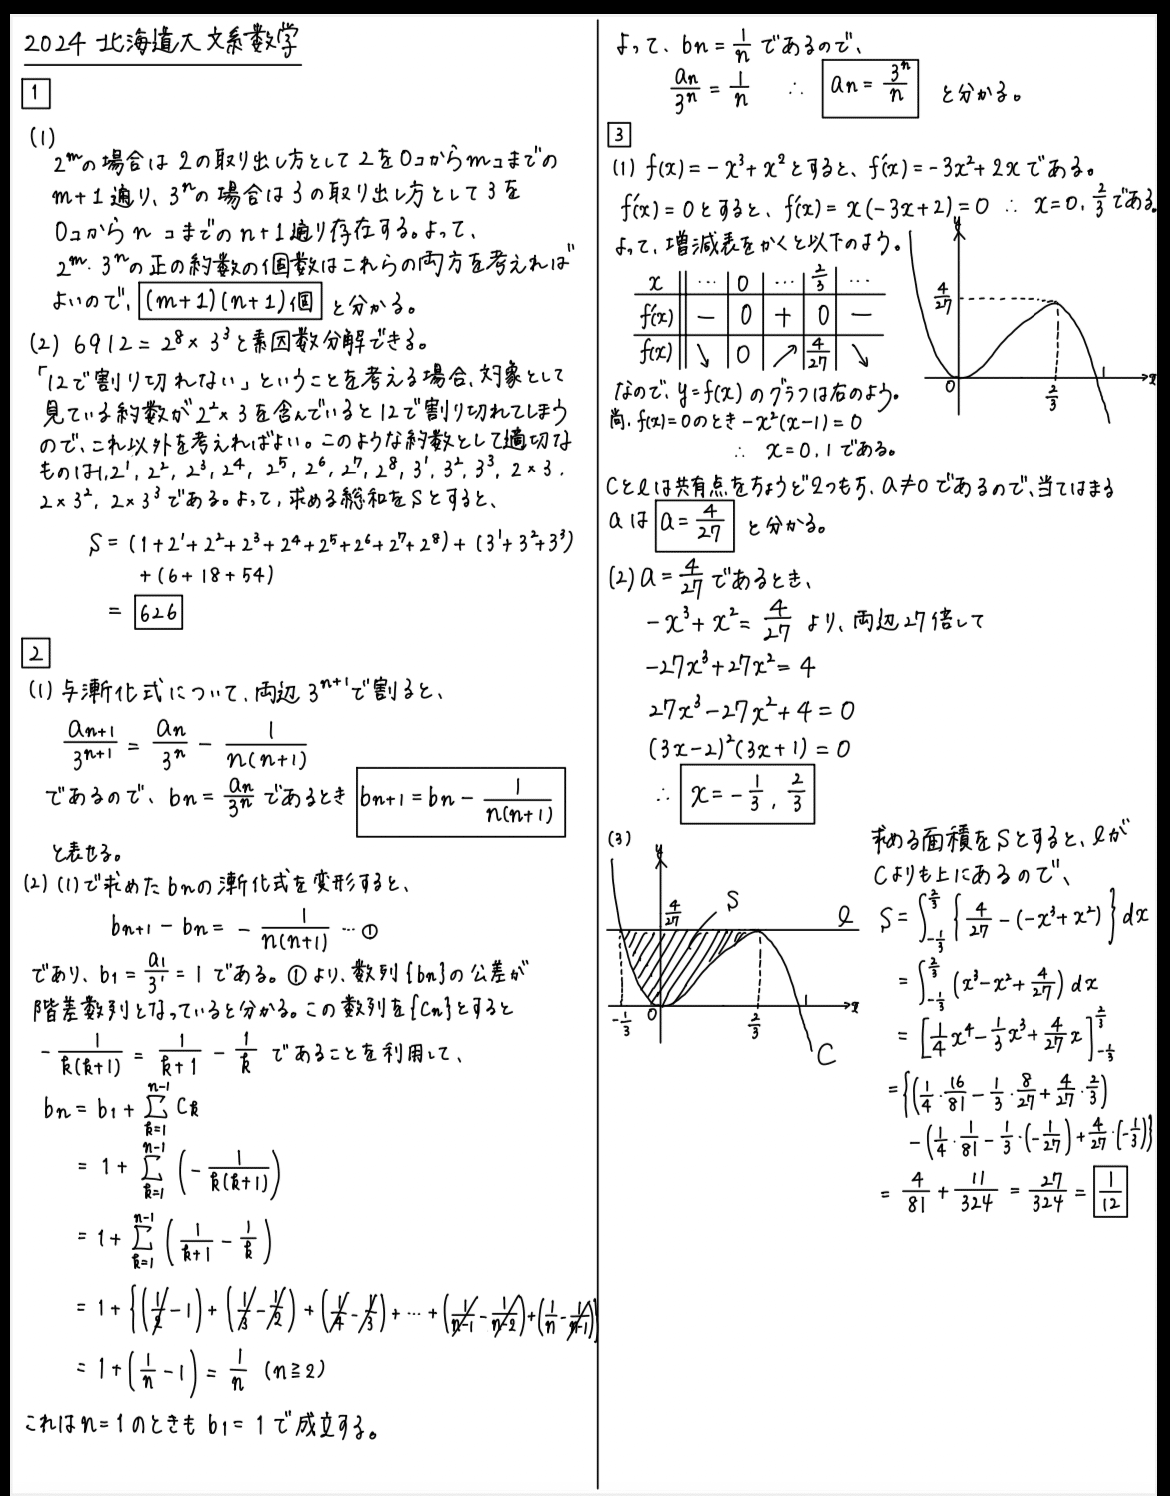 2024 北海道大 文系数学
1
(1)
2^mの場合は 2の取り出し方として 2を0コからmコまでの
m+1通り、3^nの場合は3の取り出し方として3を
0コからnコまでのn+1通り存在する。よって、
2^m・3^nの正の約数の個数はこれらの両方を考えれば
よいので、(m+1)(n+1)個 と分かる。
(2) 6912 = 2^8 × 3^3と素因数分解できる。
「12で割り切れない」ということを考える場合、対象として
見ている約数が2^2×3を含んでいると12で割り切れてしまう
ので、これ以外を考えればよい。このような約数として適切な
ものは1,2^1, 2^2, 2^3, 2^4, 2^5, 2^6, 2^7, 2^8, 3^1, 3^2, 3^3, 2×3,
2×3^2, 2×3^3である。よって、求める総和をSとすると、
S = (1+2^1+2^2+2^3+2^4+2^5+2^6+2^7+2^8) + (3^1+3^2+3^3)
+(6+18+54)
= 626
2
(1) 与漸化式について、両辺 3^{n+1}で割ると、
a_{n+1}/3^{n+1} = a_n/3^n - 1/(n(n+1))
であるので、b_n = a_n/3^n であるとき b_{n+1} = b_n - 1/(n(n+1))
と表せる。
(2) (1)で求めたb_nの漸化式を変形すると、
b_{n+1} - b_n = - 1/(n(n+1)) … ①
であり、b_1 = a_1/3^1 = 1 である。①より、数列{b_n}の公差が
階差数列となっていると分かる。この数列を{C_n}とすると
- 1/(k(k+1)) = 1/(k+1) - 1/k であることを利用して、
b_n = b_1 + Σ_{k=1}^{n-1} C_k
= 1 + Σ_{k=1}^{n-1} (- 1/(k(k+1)))
= 1 + Σ_{k=1}^{n-1} (1/(k+1) - 1/k)
= 1 + {(1/2 - 1) + (1/3 - 1/2) + (1/4 - 1/3) + … + (1/(n-1) - 1/(n-2)) + (1/n - 1/(n-1))}
= 1 + (1/n - 1) = 1/n (n≧2)
これはn=1のときも b_1 = 1 で成立する。
よって、b_n = 1/n であるので、
a_n/3^n = 1/n ∴ a_n = 3^n/n と分かる。
3
(1) f(x) = -x^3+x^2とすると、f'(x) = -3x^2+2xである。
f'(x)=0とすると、f'(x) = x(-3x+2)=0 ∴ x=0, 2/3である。
よって、増減表をかくと以下のよう。
x … 0 … 2/3 …
f'(x) - 0 + 0 -
f(x) ↘ 0 ↗ 4/27 ↘
y
4/27
0 2/3 1 x
なので、y=f(x) のグラフは右のよう。
尚、f(x)=0のとき -x^2(x-1)=0
∴ x=0, 1である。
Cとℓは共有点をちょうど2つもち、a≠0であるので、当てはまる
aは a = 4/27 と分かる。
(2) a = 4/27 であるとき、
-x^3+x^2 = 4/27 より、両辺27倍して
-27x^3+27x^2 = 4
27x^3-27x^2+4 = 0
(3x-2)^2(3x+1) = 0
∴ x = -1/3, 2/3
(3)
y
4/27 S ℓ
-1/3 0 2/3 1 x
C
求める面積をSとすると、ℓが
Cよりも上にあるので、
S = ∫_{-1/3}^{2/3} {4/27 - (-x^3+x^2)} dx
= ∫_{-1/3}^{2/3} (x^3-x^2+4/27) dx
= [1/4 x^4 - 1/3 x^3 + 4/27 x]_{-1/3}^{2/3}
= {(1/4・16/81 - 1/3・8/27 + 4/27・2/3)
- (1/4・1/81 - 1/3・(-1/27) + 4/27・(-1/3))}
= 4/81 + 11/324 = 27/324 = 1/12